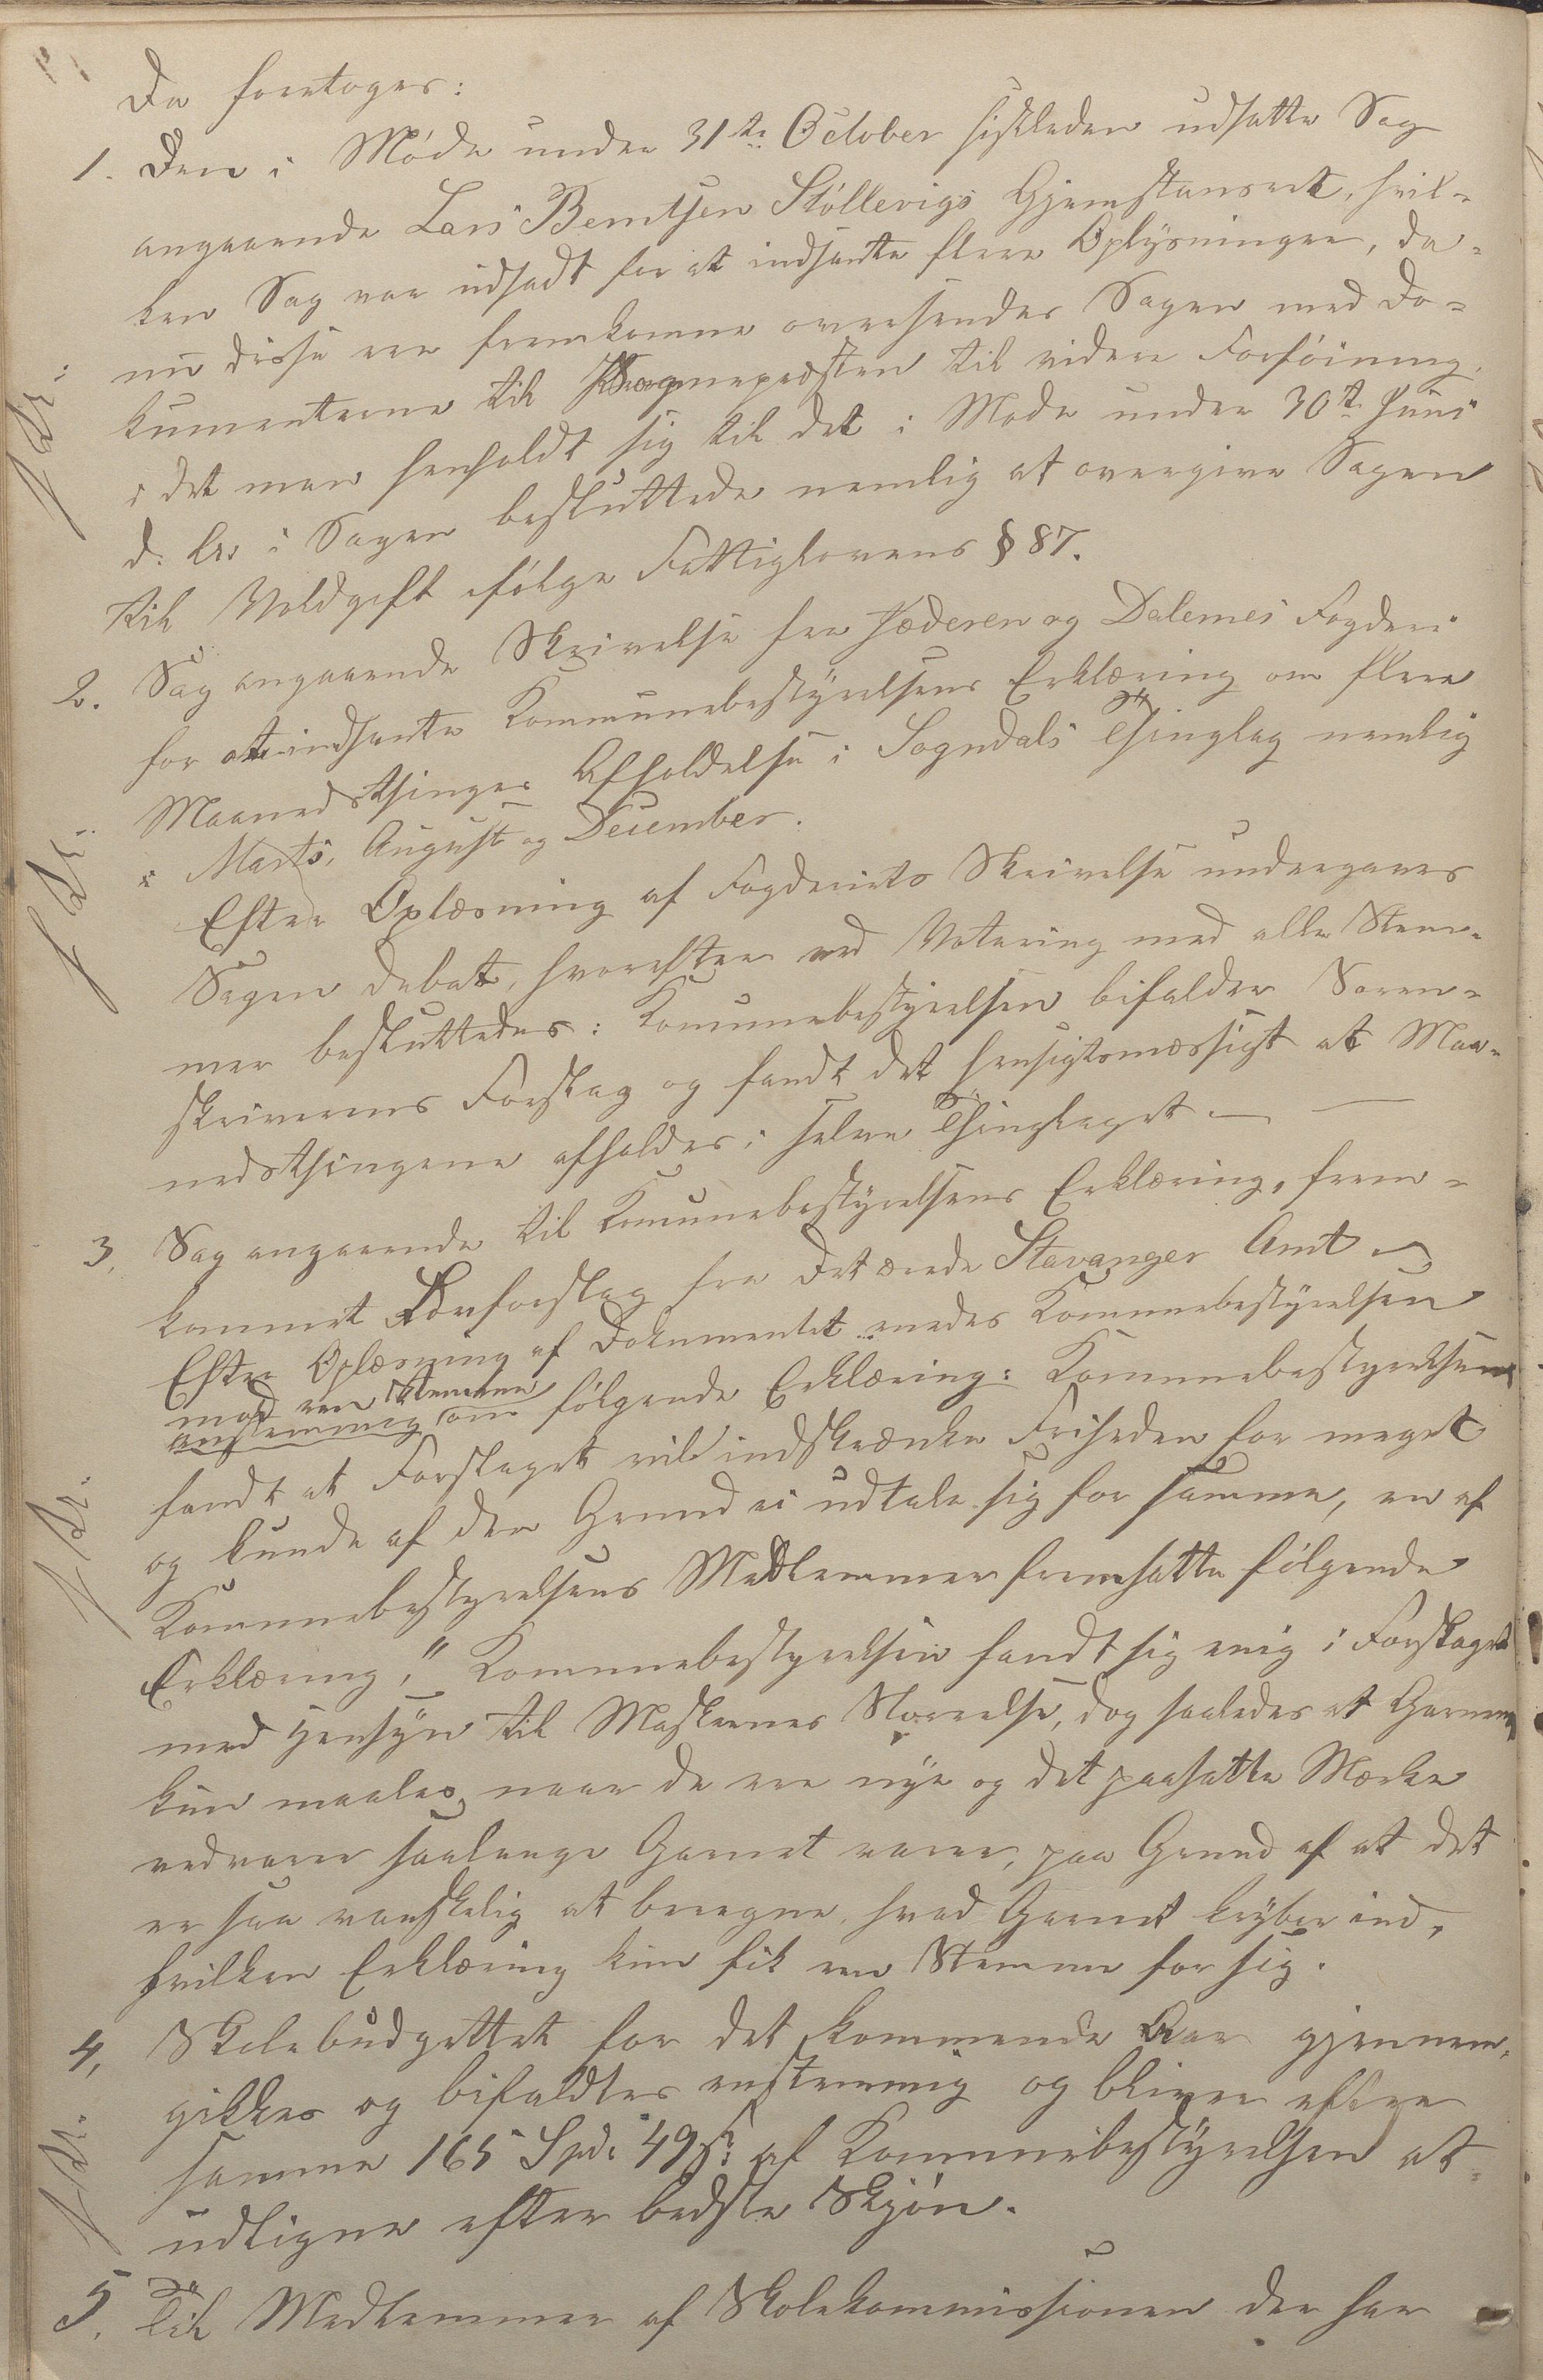 Da foretoges:
1. Den i Møde under 31te October sidstleden udsatte Sag
angaaende Lars Berntsen Støllevigs Hjemstavnsret, hvil-
ken Sag var udsadt for at indhente flere Oplysninger, da
nu disse ere fremkomne oversendes Sagen med Do-
kumenterne til Sognepræsten til videre Forføining,
i det man henholdt sig til det i Møde under 30te Juni
d. Ar i Sagen besluttede nemlig at overgive Sagen
til Voldgift ifølge Fattiglovens § 87.
2. Sag angaaende Skrivelse fra Jæderen og Dalernes Fogderi
for at indhente Kommunebestyrelsens Erklæring om flere
Maanedsthinges Afholdelse i Sogndals Thinglag nemlig
i Marts, August og December.
Efter Oplæsning af Fogderiets Skrivelse undergaves
Sagen Debat, hvorefter ved Votering med alle Stem-
mer besluttedes: Komunebestyrelsen bifalder Soren-
skriverens Forslag og fandt det hensigtsmæssigt at Maa-
nedsthingene afholdes i selve Thinglaget —
3. Sag angaaende til Komunebestyrelsens Erklæring, frem-
kommet Lovforslag fra det ærede Stavanger Amt —
Efter Oplæsning af Dokumentet enedes Kommunebestyrelsen
mod een Stemme
enstemmig om følgende Erklæring: Kommunebestyrelsen
fandt at Forslaget vil indskrænke Friheden for meget
og kunde af den Grund ei udtale sig for samme, en af
Kommunebestyrelsens Medlemmer fremsatte følgende
Erklæring, "Kommunebestyrelsen fandt sig enig i Forslaget
med Hensyn til Maskernes Størrelse, dog saaledes at Garnene
kun maales, naar de ere nye og det paasatte Mærke
vedvarer saalenge Garnet varer, paa Grund af at det
er saa vanskelig at beregne, hvad Garnet kryber ind,
hvilken Erklæring kun fik en Stemme for sig.
4, Skolebudgettet for det kommende Aar gjennem-
gikkes og bifaldtes enstemmig og bliver efter
samme 165 Spd. 49 ß af Kommunebestyrelsen at
udligne efter bedste Skjøn.
5. Til Medlemmer af Skolekommissionen der har